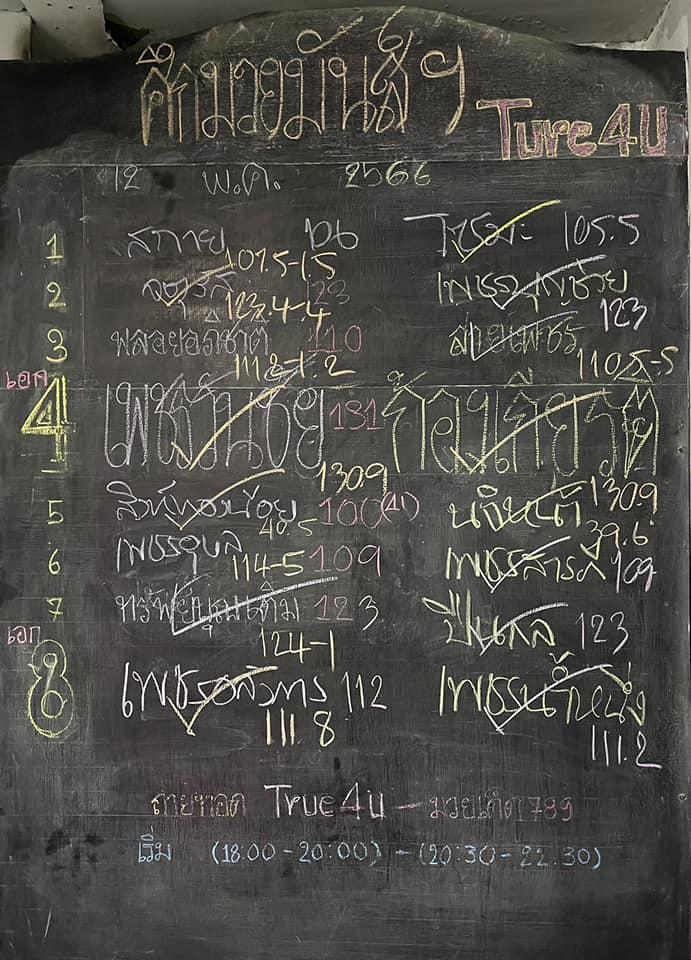 ศึกมวยมันส์ๆ Ture4U
12 พ.ค. 2566
1 สกาย 106 105.5
107.5-1.5
2 123
123.4-.4 123
3 พลอยอภิชาติ 110 สายเพชร
111.2-1.2 110.5-.5
เอก
4 เพชรวันชัย 131 ก้องเกียรติ
130.9
5 สิงห์ทองน้อย 100(41) 130.9
40.5 39.6
6 เพชรอุบล 109 เพชรสารคี 109
114-5
7 ทรัพย์นุมเติม 123 ปืนกล 123
124-1
เอก
8 เพชรอลังการ 112 เพชรน้ำหนึ่ง
111.8 111.2
ถ่ายทอด True4U - มวยเด็ด789
เริ่ม (18:00-20:00) - (20:30-22.30)